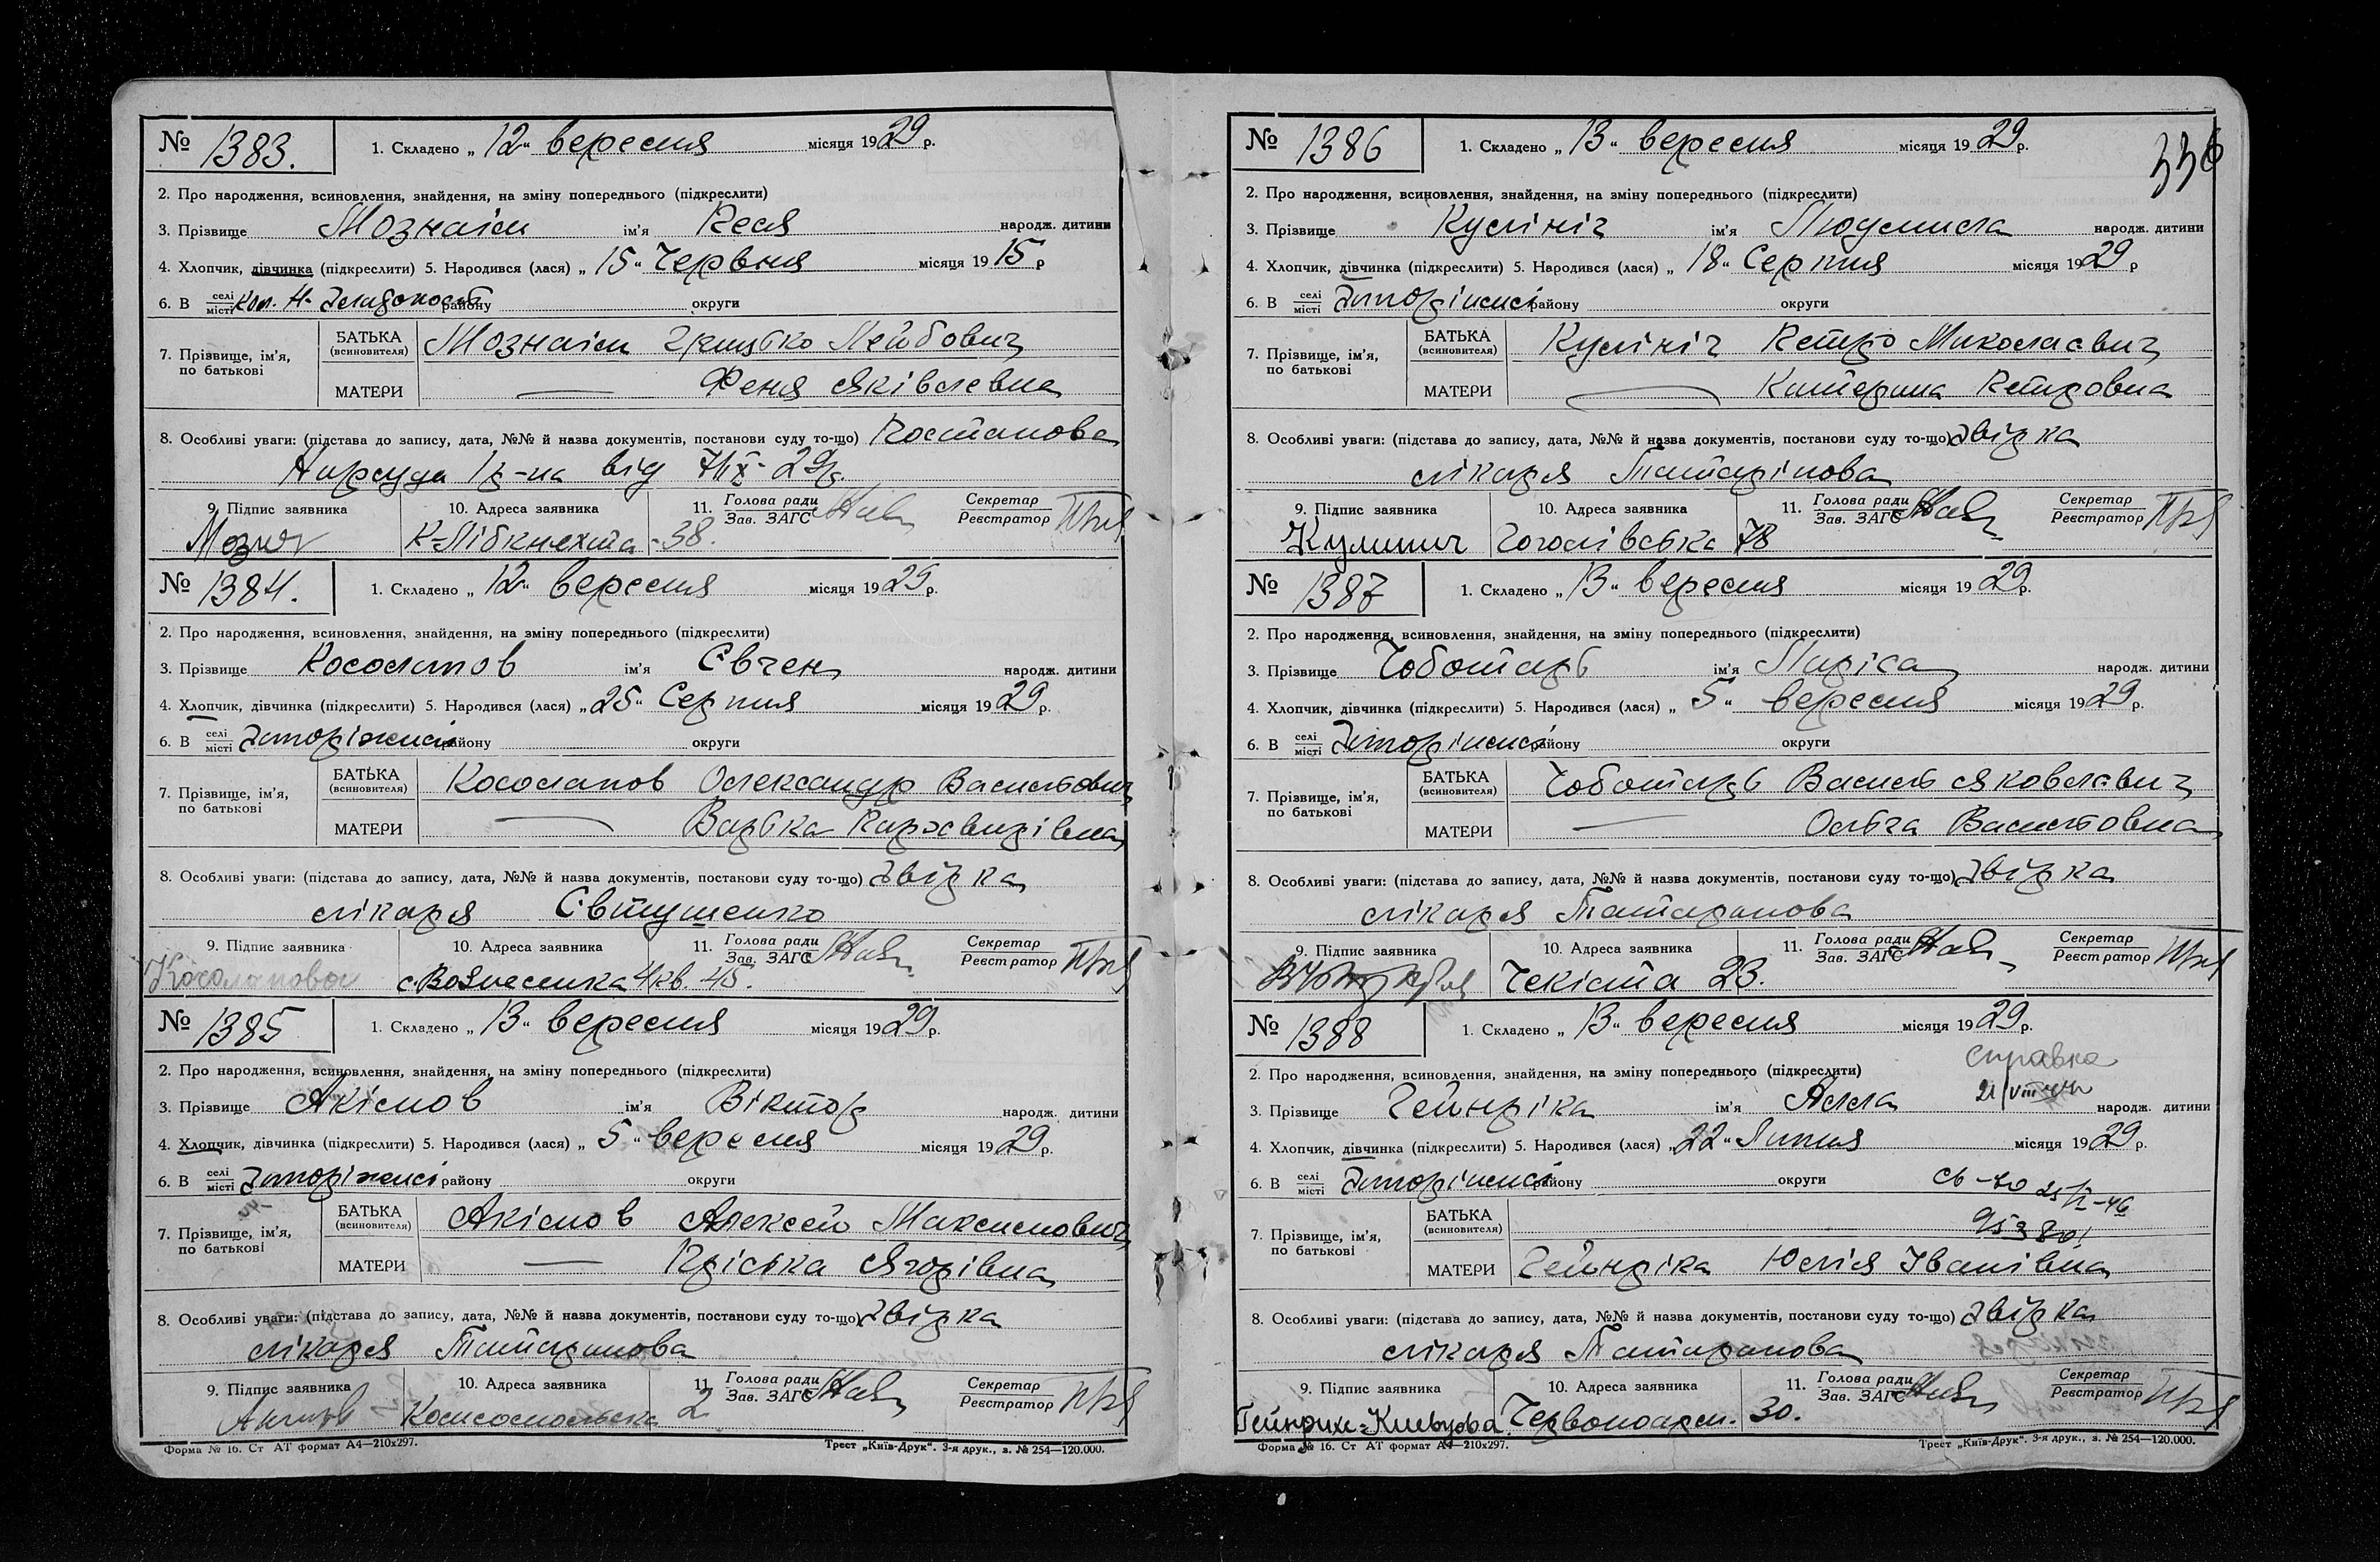 № 1383. 1. Складено „ 12 “ вересня місяця 1929 р.
2. Про народження, всиновлення, знайдення, на зміну попереднього (підкреслити)
3. Прізвище Мознаім ім'я Песя народж. дитини
4. Хлопчик, дівчинка (підкреслити) 5. Народився (лася) „ 15 “ Червня місяця 1915 р
6. В селі місті кол. Н- району округи
7. Прізвище, ім'я, по батькові БАТЬКА (всиновителя) Мознаім Грицько Лейбович
МАТЕРИ — Феня Яківлевна
8. Особливі уваги: (підстава до запису, дата, №№ й назва документів, постанови суду то-що) Постанова
Нарсуда 1 р-на від 7/IX- 29р.
9. Підпис заявника 10. Адреса заявника 11. Голова ради Зав. ЗАГС Секретар Реєстратор
К-Лібкнехта - 38.
№ 1384. 1. Складено „ 12 “ вересня місяця 1929 р.
2. Про народження, всиновлення, знайдення, на зміну попереднього (підкреслити)
3. Прізвище Косолапов ім'я Євген народж. дитини
4. Хлопчик, дівчинка (підкреслити) 5. Народився (лася) „ 25 “ Серпня місяця 1929 р.
6. В селі місті Запоріжжі району округи
7. Прізвище, ім'я, по батькові БАТЬКА (всиновителя) Косолапов Олександр Васильович
МАТЕРИ — Варька
8. Особливі уваги: (підстава до запису, дата, №№ й назва документів, постанови суду то-що) Звірка
лікаря Євтушенко
9. Підпис заявника 10. Адреса заявника 11. Голова ради Зав. ЗАГС Секретар Реєстратор
Косолапова с. Вознесенка 4 кв. 45.
№ 1385 1. Складено „ 13 “ вересня місяця 1929 р.
2. Про народження, всиновлення, знайдення, на зміну попереднього (підкреслити)
3. Прізвище Акімов ім'я Віктор народж. дитини
4. Хлопчик, дівчинка (підкреслити) 5. Народився (лася) „ 5 “ вересня місяця 1929 р.
6. В селі місті Запоріжжі району округи
7. Прізвище, ім'я, по батькові БАТЬКА (всиновителя) Акімов Алексей Максимович
МАТЕРИ — Пріська Ягорівна
8. Особливі уваги: (підстава до запису, дата, №№ й назва документів, постанови суду то-що) Звірка
лікаря Татаринова
9. Підпис заявника 10. Адреса заявника 11. Голова ради Зав. ЗАГС Секретар Реєстратор
Акимов Комсомольська 2
Форма № 16. Ст АТ формат А4—210х297. Трест „Київ-Друк“. 3-я друк., з. № 254—120.000.
336
№ 1386 1. Складено „ 13 “ вересня місяця 1929 р.
2. Про народження, всиновлення, знайдення, на зміну попереднього (підкреслити)
3. Прізвище Кулініч ім'я Людмила народж. дитини
4. Хлопчик, дівчинка (підкреслити) 5. Народився (лася) „ 18 “ Серпня місяця 1929 р
6. В селі місті Запоріжжі району округи
7. Прізвище, ім'я, по батькові БАТЬКА (всиновителя) Кулініч Петро Миколаєвич
МАТЕРИ — Катерина Петровна
8. Особливі уваги: (підстава до запису, дата, №№ й назва документів, постанови суду то-що) Звірка
лікаря Татарінова
9. Підпис заявника 10. Адреса заявника 11. Голова ради Зав. ЗАГС Секретар Реєстратор
Кулинич Гоголівська 78
№ 1387 1. Складено „ 13 “ вересня місяця 1929 р.
2. Про народження, всиновлення, знайдення, на зміну попереднього (підкреслити)
3. Прізвище Чоботарь ім'я Ларіса народж. дитини
4. Хлопчик, дівчинка (підкреслити) 5. Народився (лася) „ 5 “ вересня місяця 1929 р.
6. В селі місті Запоріжжі району округи
7. Прізвище, ім'я, по батькові БАТЬКА (всиновителя) Чоботарь Василь Яковлевич
МАТЕРИ — Ольга Васильовна
8. Особливі уваги: (підстава до запису, дата, №№ й назва документів, постанови суду то-що) Звірка
лікаря Татаринова
9. Підпис заявника 10. Адреса заявника 11. Голова ради Зав. ЗАГС Секретар Реєстратор
Чекіста 23.
№ 1388 1. Складено „ 13 “ вересня місяця 1929 р.
справка
2. Про народження, всиновлення, знайдення, на зміну попереднього (підкреслити) 21/VIII
3. Прізвище Гейнріка ім'я Алла народж. дитини
4. Хлопчик, дівчинка (підкреслити) 5. Народився (лася) „ 22 “ Липня місяця 1929 р.
6. В селі місті Запоріжжі району округи
7. Прізвище, ім'я, по батькові БАТЬКА (всиновителя)
МАТЕРИ Гейнріка Юлія Іванівна
8. Особливі уваги: (підстава до запису, дата, №№ й назва документів, постанови суду то-що) Звірка
лікаря Татаринова
9. Підпис заявника 10. Адреса заявника 11. Голова ради Зав. ЗАГС Секретар Реєстратор
Червоноарм. 30.
Форма № 16. Ст АТ формат А4—210х297. Трест „Київ-Друк“. 3-я друк., з. № 254—120.000.